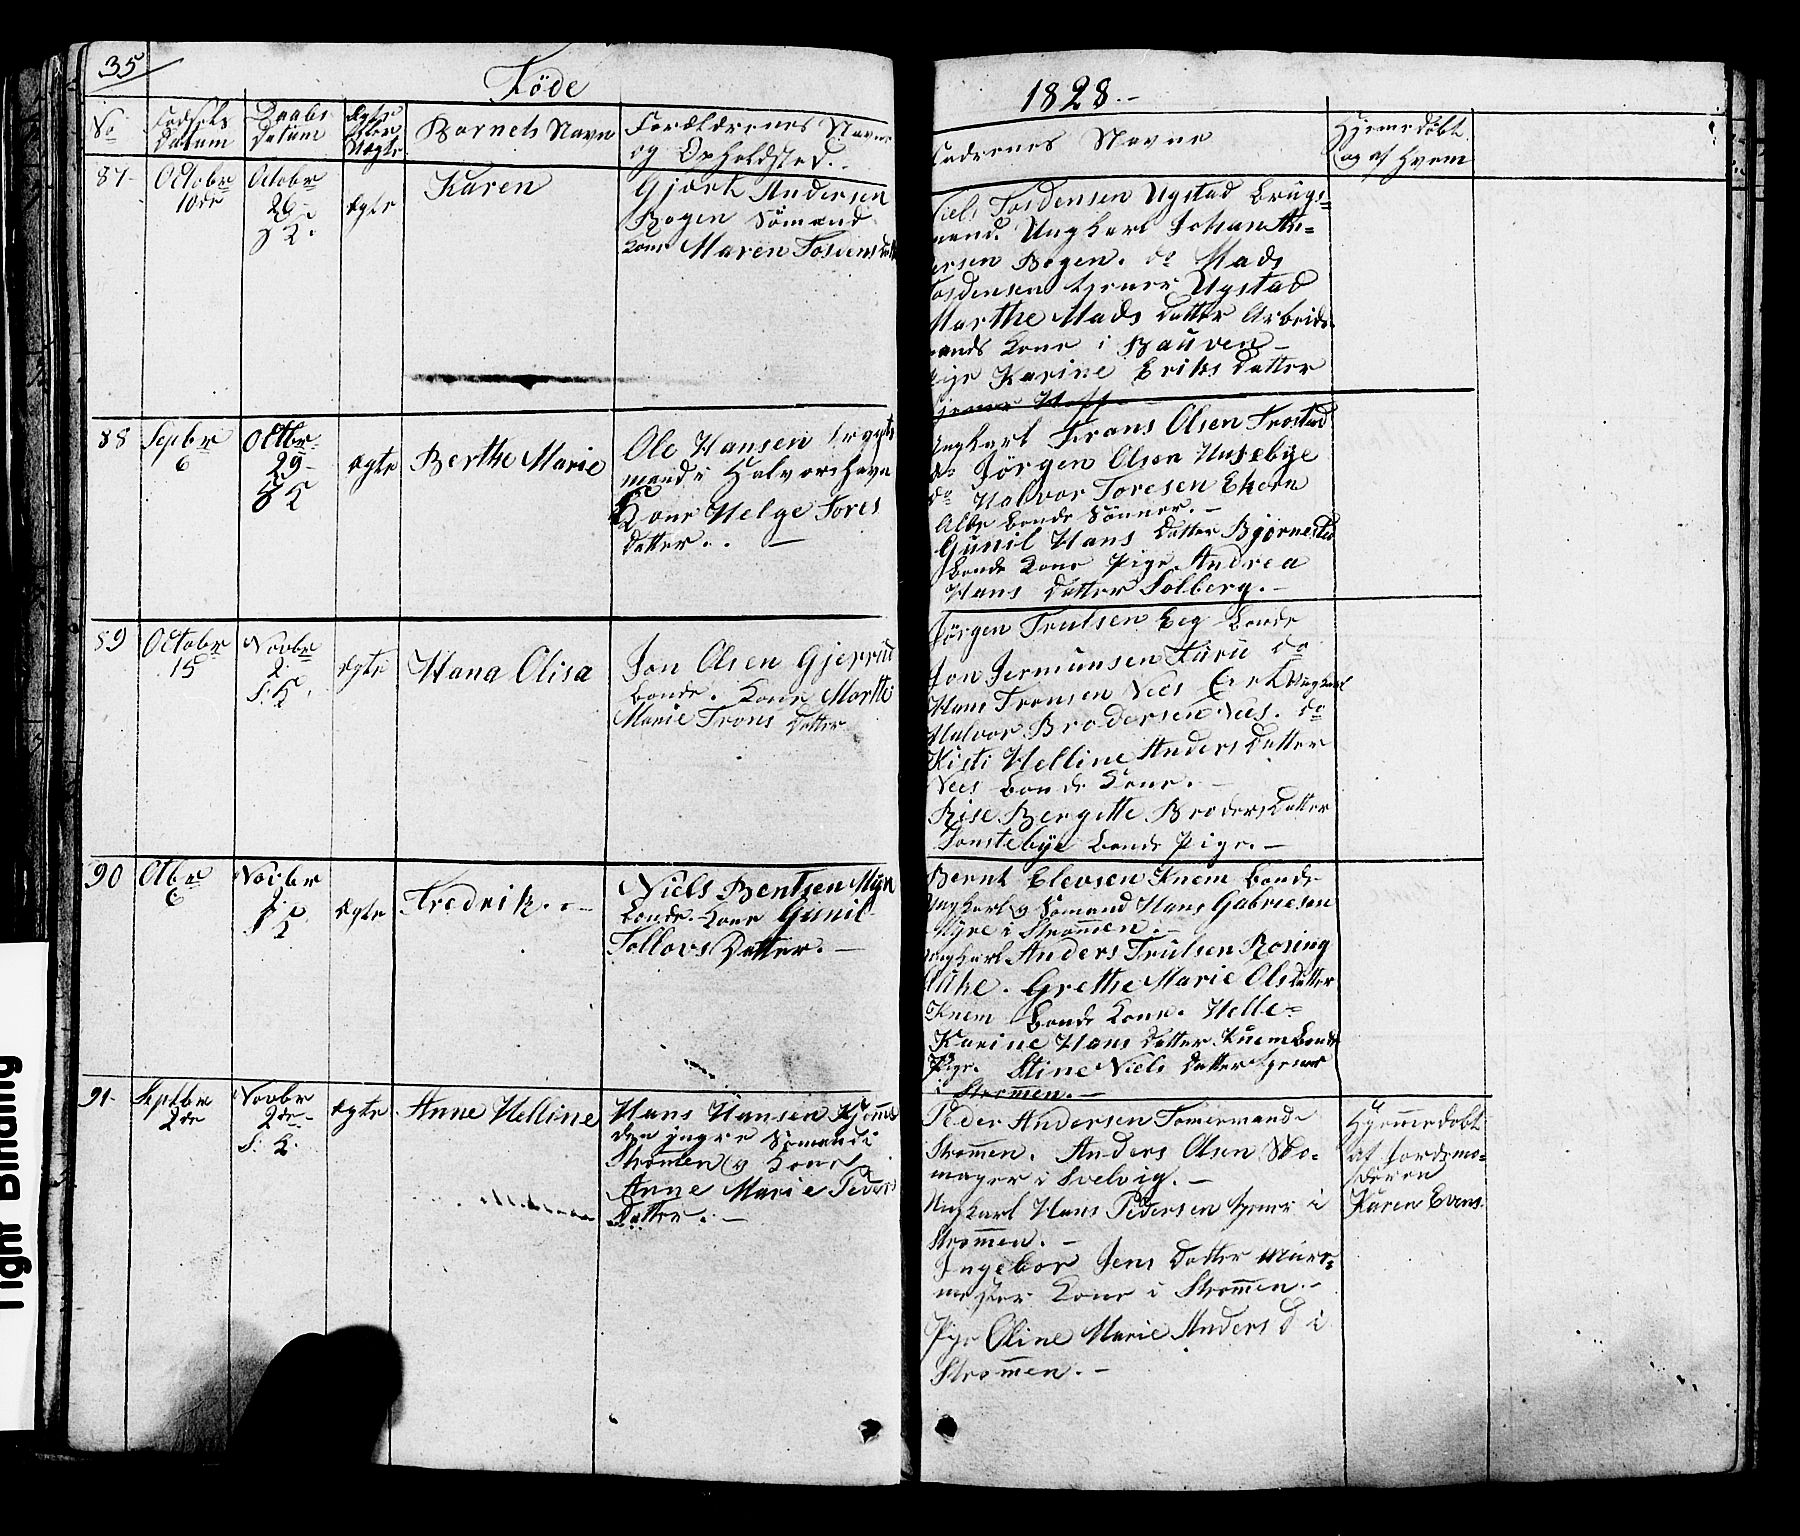 35
Føde
1828.-
No
Fødsels Datum
Daabs Datum
Ægte eller Uægte
Barnets Navn
Forældrenes Navne
og Opholdsted.
Fadrenes Navne
Hjemedöbt
og af hvem
87-
Octobr
10de
Octobr
26-
S K.
Ægte
Karen
Andersen
Bogen Sömand
Kone Maren Tostens
Tosdensen Ugstad brugs=
mand. Ungkarl Johan An=
dersen Bogen. do Mads
Tosdensen tjener Ugstad
Marthe Mads datter Arbeids
mands Kone i Bauven-
Pige Karine Eriks datter
tjener
88
Sepbr
6
Octbr.
29-
S K
ægte
Berthe Marie
Ole Hansen brugs
mand i Halvorshavn
Kone Helge Tores
datter. . -
Ungkarl Frans Olsen Trostad
do Jörgen Olsen Husebye
do Halvor Toresen Ekern
Alle bonde Sönner.-
Gunil Hans datter Björnestad
bonde Kone Pige Andrea
Hans datter Solberg.-
89
Octobr
15
Novbr
2
S. K.
ægte
Hana Olisa
Jon Olsen Gjerru
bonde. Kone Marthe
Marie Trons datter
Jörgen Trulsen Eeg bonde
Jon Jermunsen Furu do
Hans Tronsen Nees Ungkarl
Halvor Brodersen Nees. do
Kisti Helline Anders datter
Nees bonde Kone.-
Rise Bergitte Broders datter
Tonstebye bonde Pige.-
90
Otbr
6
Novbr
S K
ægte
Fredrik.-
Niels Bentsen
bonde.- Kone Gunil
Tollovs Datter.-
Bernt Elevsen Knem bonde
Ungkarl og Sömand Hans Gabrielsen
i Strømmen.-
Ungkarl Anders Trulsen Rosing
Grethe Marie Ols datter
Knem bonde Kone. Helle=
Karine Hans datter Knem bonde
Pige. Stine Niels datter tjener
i Strömmen.-
91-
Septbr
2de
Novbr
2de-
S. K.
ægte
Anne Helline
Hans Hansen
den yngre Sömand i
Strömen og Kone
Anne Marie Peders
Datter.-
Peder Andersen Tömermand
Strömmen. Anders Olsen Sko-
mager i Svelvig.-
Ungkarl Hans Pedersen tjener i
Strömmen.-
Ingebor Jens datter Mure=
mester Kone i Strömmen.-
Pige Oline Marie Anders D i
Strömmen.-
Hjemedöbt
af Jordemo=
deren
Karen Evens.
Tight Binding